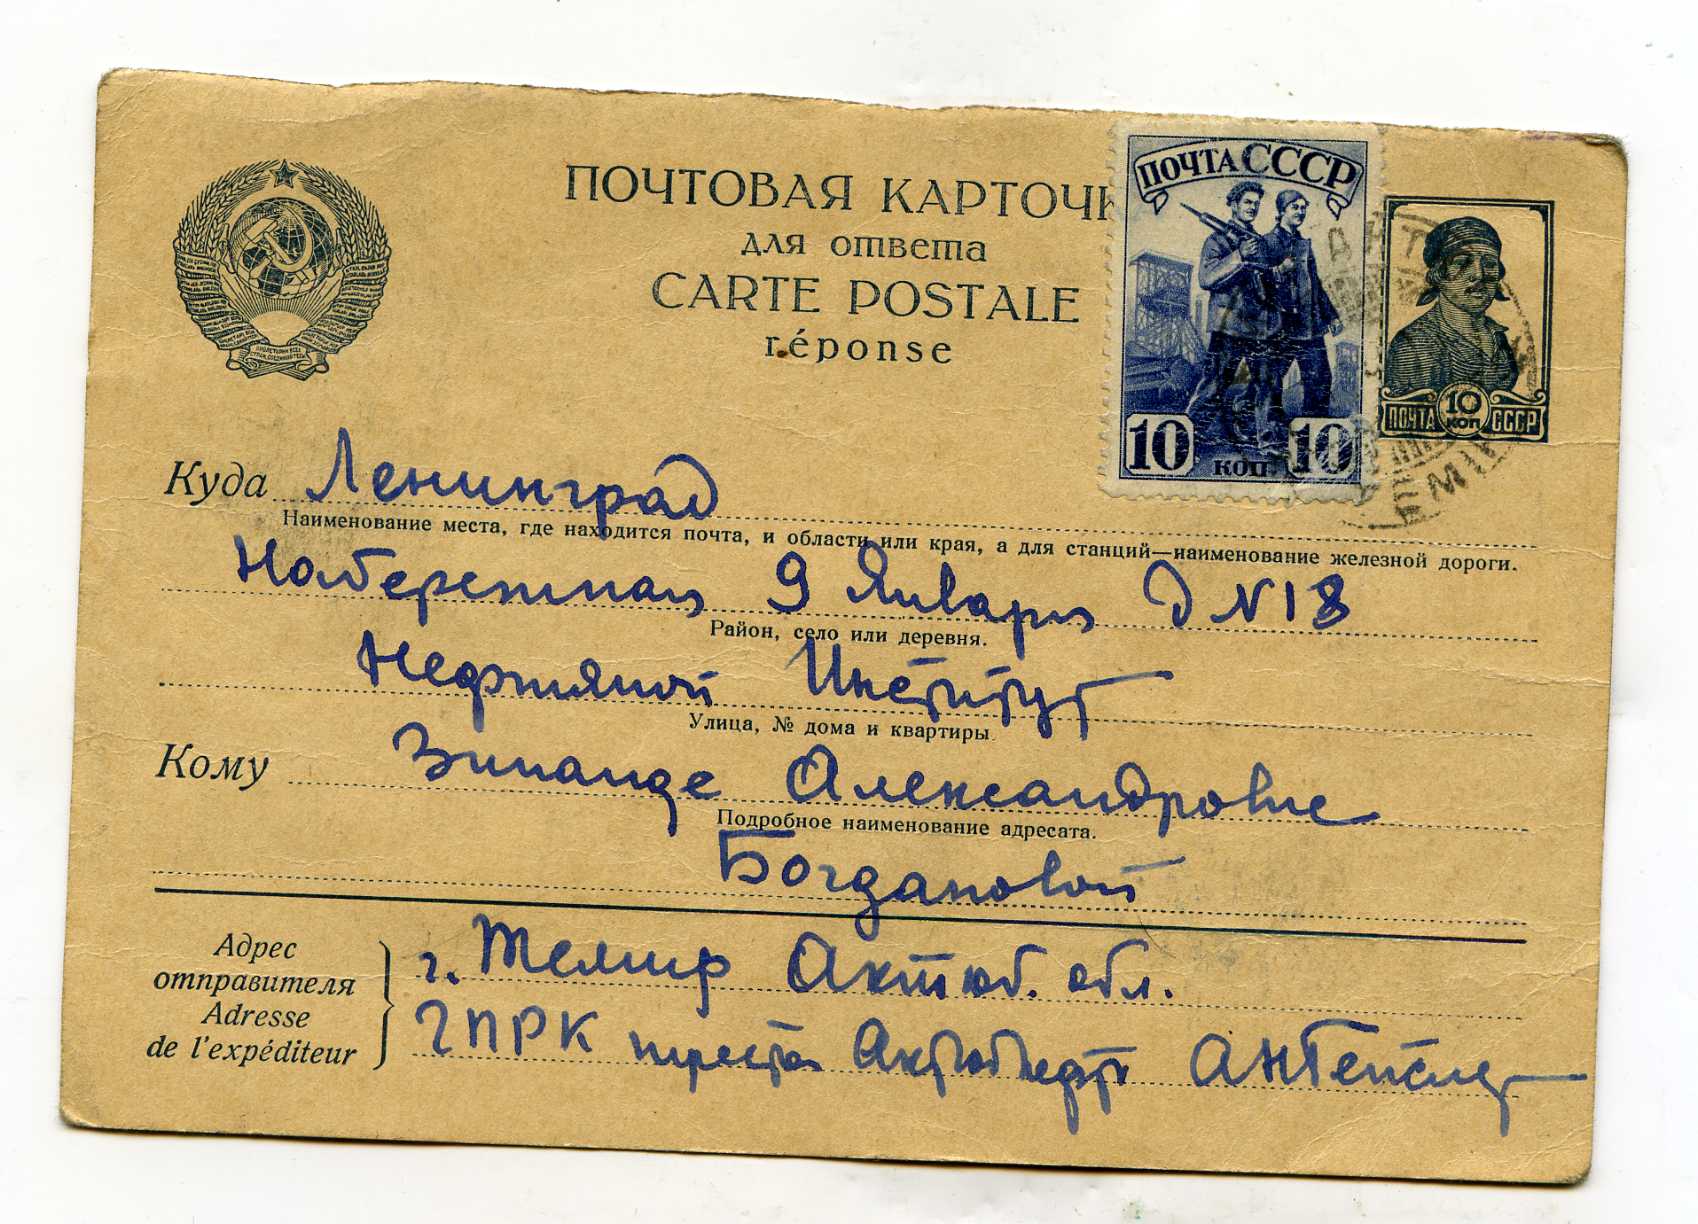 ПОЧТОВАЯ КАРТОЧК
для ответа
CARTE POSTALE
réponse
ПОЧТА СССР
10 КОП. 10
ПОЧТА 10 КОП СССР
Куда Ленинград
Наименование места, где находится почта, и области или края, а для станций—наименование железной дороги.
Набережная 9 Января д N 18
Район, село или деревня.
Нефтяной Институт
Улица, № дома и квартиры
Кому Зинаиде Александровне
Подробное наименование адресата.
Богдановой
Адрес
отправителя
Adresse
de l'expéditeur
г. Темир Актюб. обл.
ГПРК треста Актюбнефть